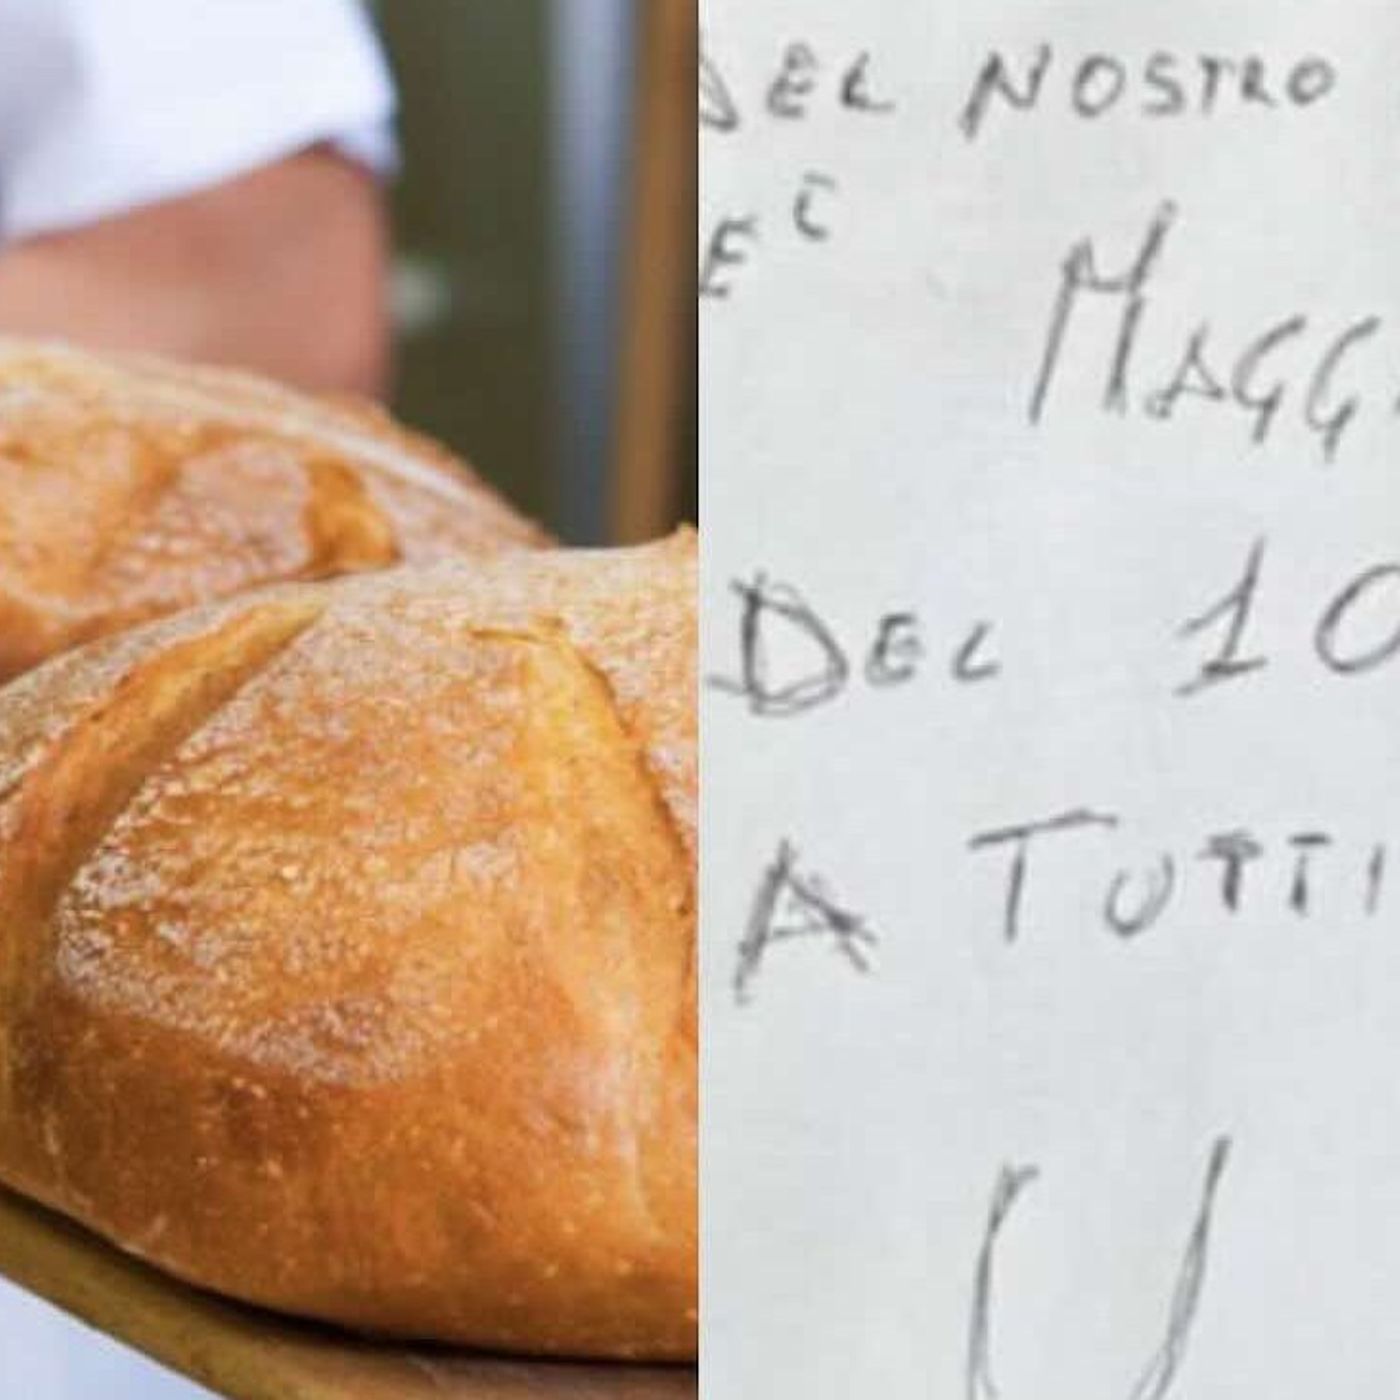 DEL NOSTRO
E È
MAGG
DEL 10
A TUTTI